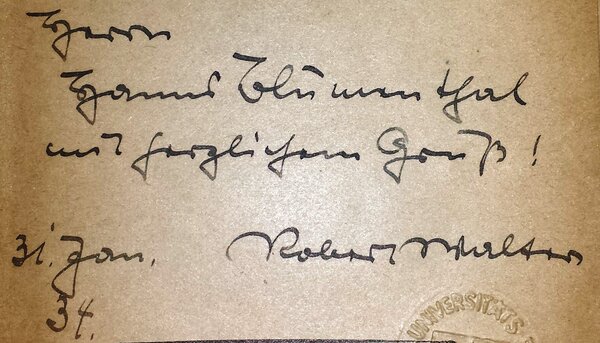 Herrn
Hanns Blumenthal
mit herzlichem Gruß!
31. Jan. Robert Walter
34.
UNIVERSITÄTS